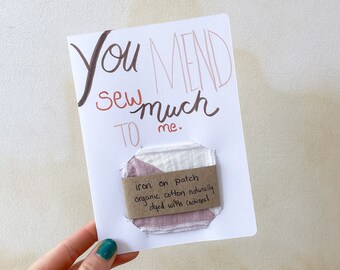 YOU MEND
sew much
TO me.
iron on patch
organic cotton naturally
dyed with cochineal